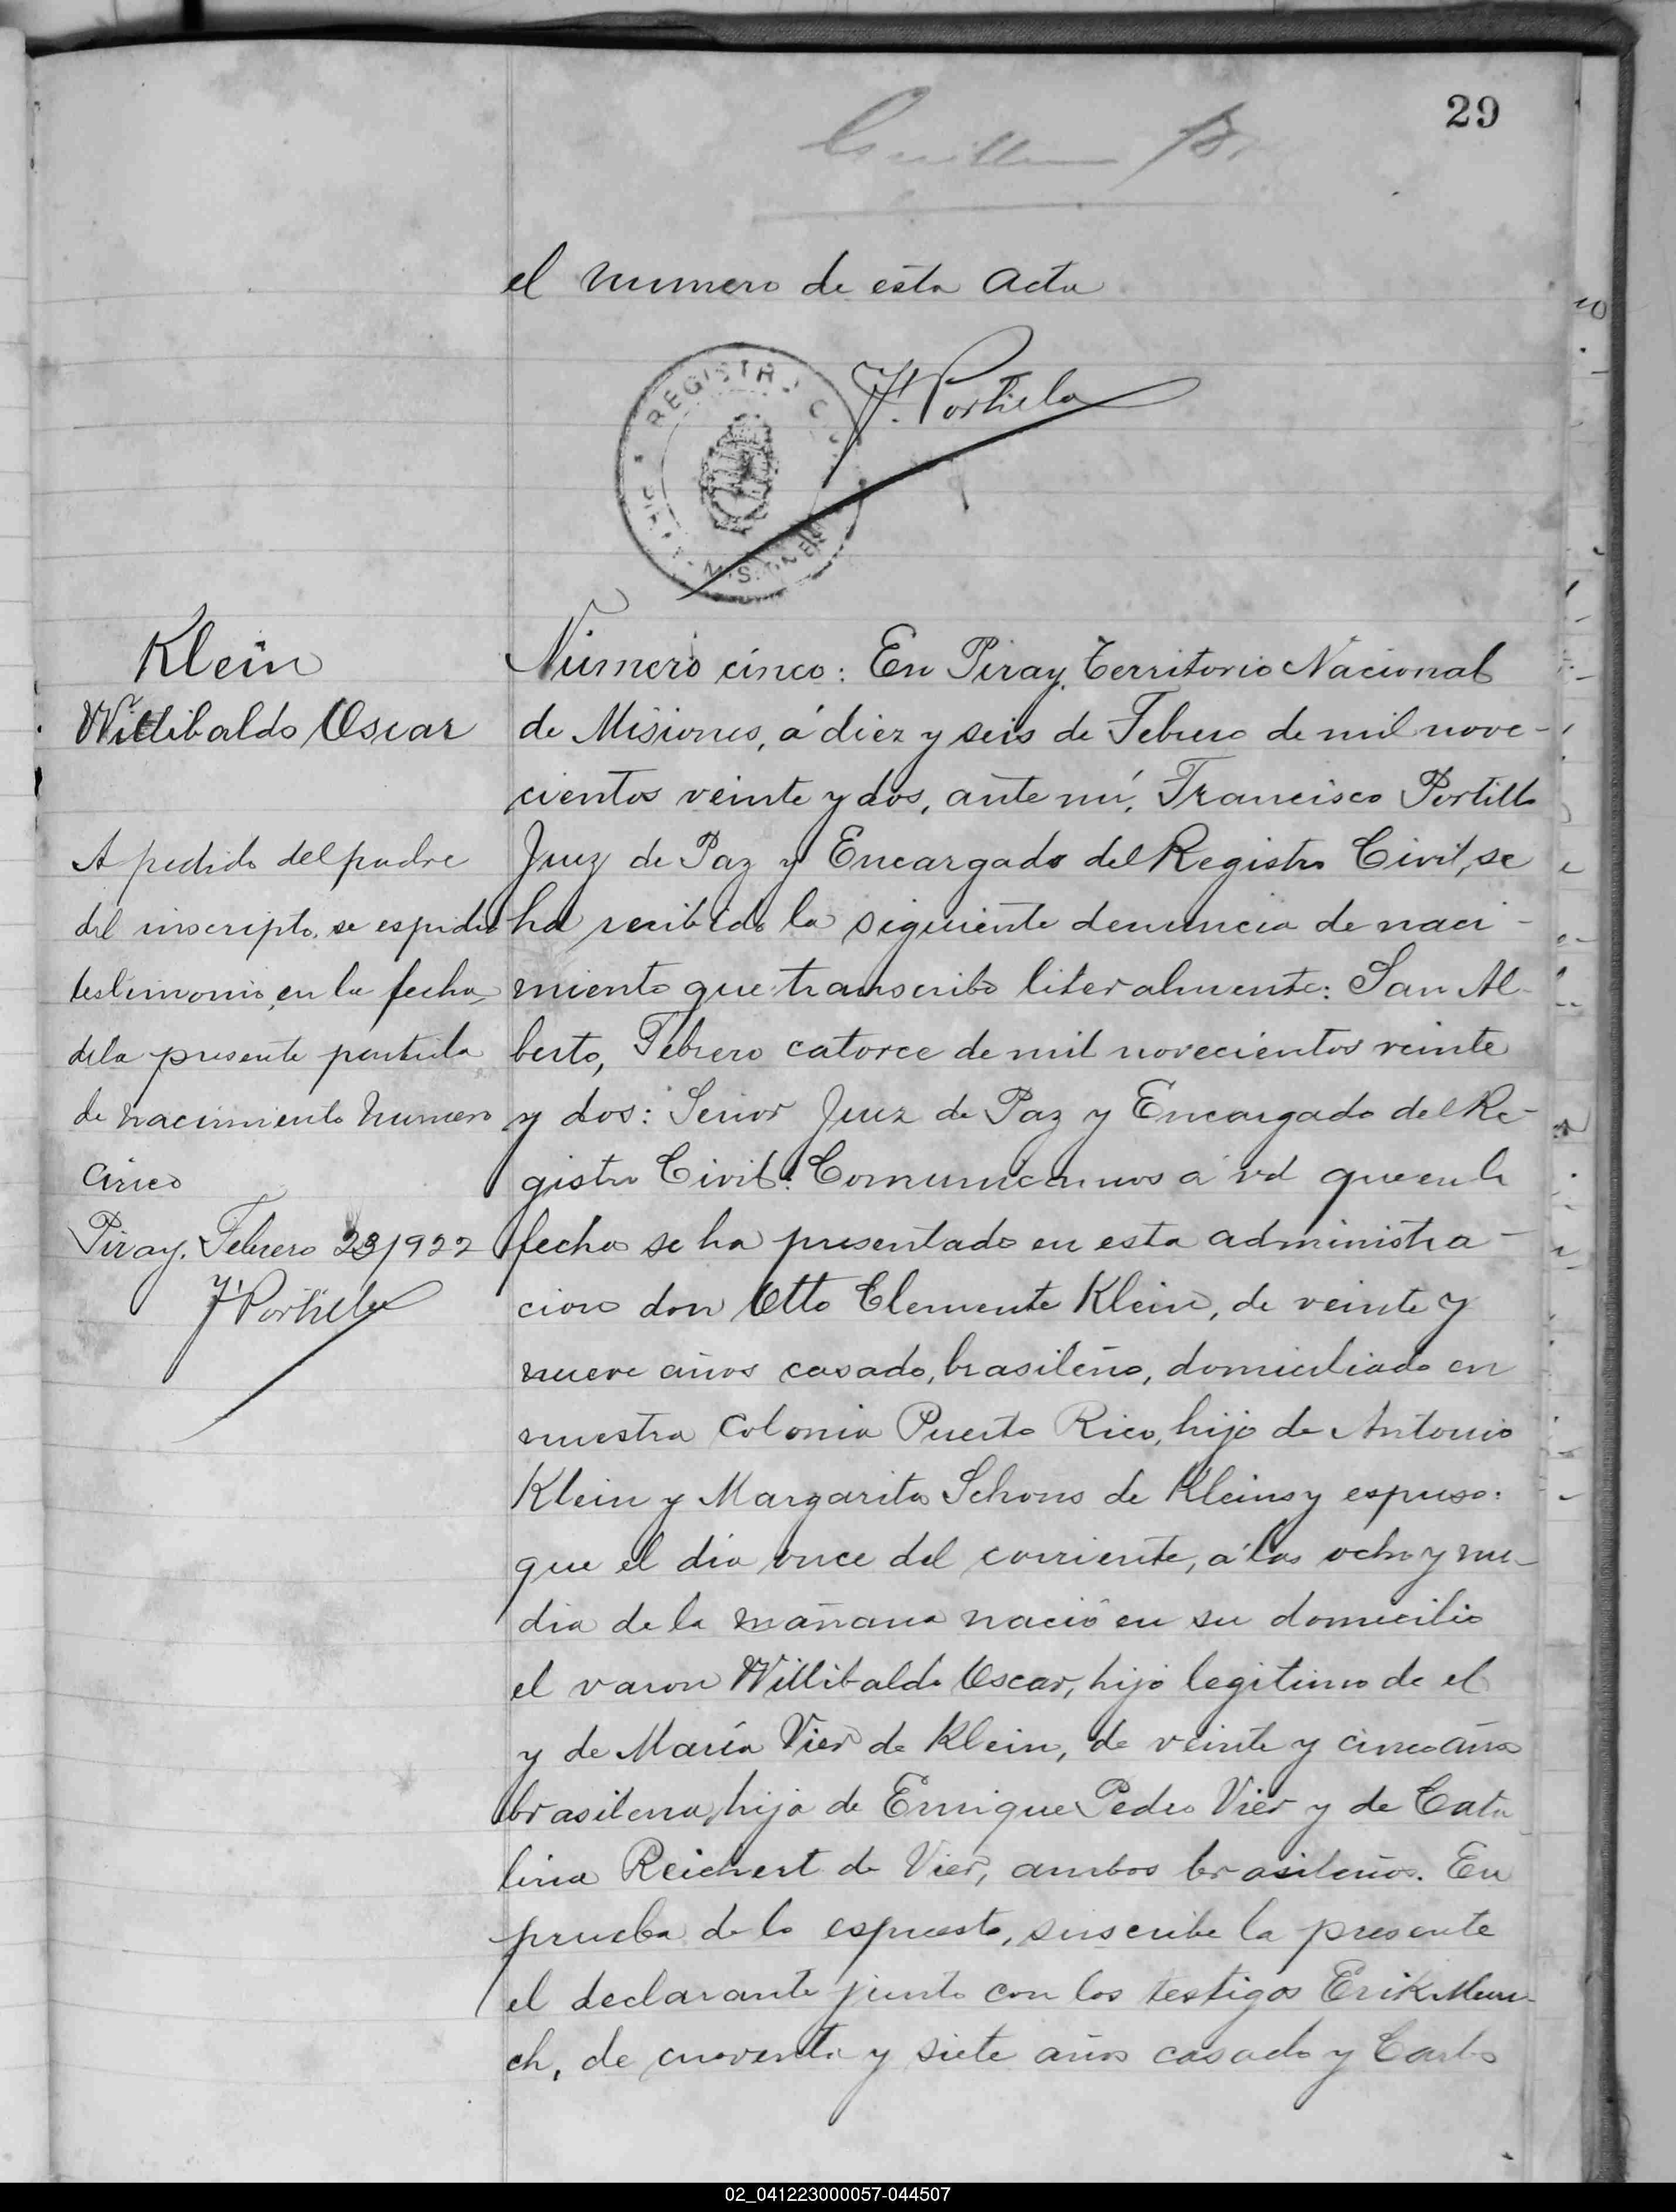 29
el numero de esta acta
REGISTRO C
MISIONES
F. Portillo
Klein
Willibaldo Oscar
A pedido del padre
del inscripto, se espidió
testimonio, en la fecha,
de la presente partida
de nacimiento numero
cinco
Piray. Febrero 23/922
F. Portillo
Número cinco: En Piray, Territorio Nacional
de Misiones, á diez y seis de Febrero de mil nove-
cientos veinte y dos, ante mí, Francisco Portillo
Juez de Paz y Encargado del Registro Civil, se
ha recibido la siguiente denuncia de naci-
miento que transcribo literalmente: San Al-
berto, Febrero catorce de mil novecientos veinte
y dos: Señor Juez de Paz y Encargado del Re-
gistro Civil: Comunicamos á vd que en la
fecha se ha presentado en esta administra-
cion don Otto Clemente Klein, de veinte y
nueve años casado, brasileño, domiciliado en
nuestra Colonia Puerto Rico, hijo de Antonio
Klein y Margarita Schons de Klein y espuso:
que el dia once del corriente, á las ocho y me-
dia de la mañana nació en su domicilio
el varon Willibaldo Oscar, hijo legitimo de el
y de María Vier de Klein, de veinte y cinco años
brasilena, hija de Enrique Pedro Vier y de Cata
lina Reichert de Vier, ambos brasileños. En
prueba de lo espuesto, suscribe la presente
el declarante junto con los testigos Erik Mun-
ch, de cuarenta y siete años casado y Carlos
02_041223000057-044507